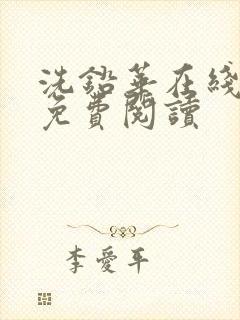 洗鉛華在綫
免費閱讀
李愛平